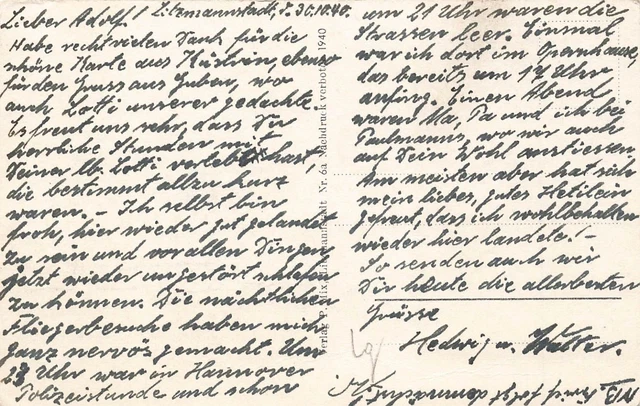 Lieber Adolf! Litzmannstadt, d. 30.10.40.
Habe recht vielen Dank für die
schöne Karte aus Küstrin, ebenso
für den Gruss aus Guben, wo
auch Lotti unserer gedachte.
Es freut uns sehr, dass Du
herrliche Stunden mit
Deiner lb. Lotti verlebt hast,
die bestimmt allzu kurz
waren. – Ich selbst bin
froh, hier wieder gut gelandet
zu sein und vor allen Dingen
jetzt wieder ungestört schlafen
zu können. Die nächtlichen
Fliegerbesuche haben mich
ganz nervös gemacht. Um
23 Uhr war in Hannover
Polizeistunde und schon
Nr. 6a Nachdruck verboten 1940
um 21 Uhr waren die
Strassen leer. Einmal
war ich dort im Opernhause,
das bereits um 17 Uhr
anfing. Einen Abend
waren Ma, Pa und ich bei
Paulmanns, wo wir auch
auf Dein Wohl anstiessen.
Am meisten aber hat sich
mein liebes, gutes Hetilein
gefreut, dass ich wohlbehalten
wieder hier landete! –
So senden auch wir
Dir heute die allerbesten
Grüsse
Hedwig u. Walter.